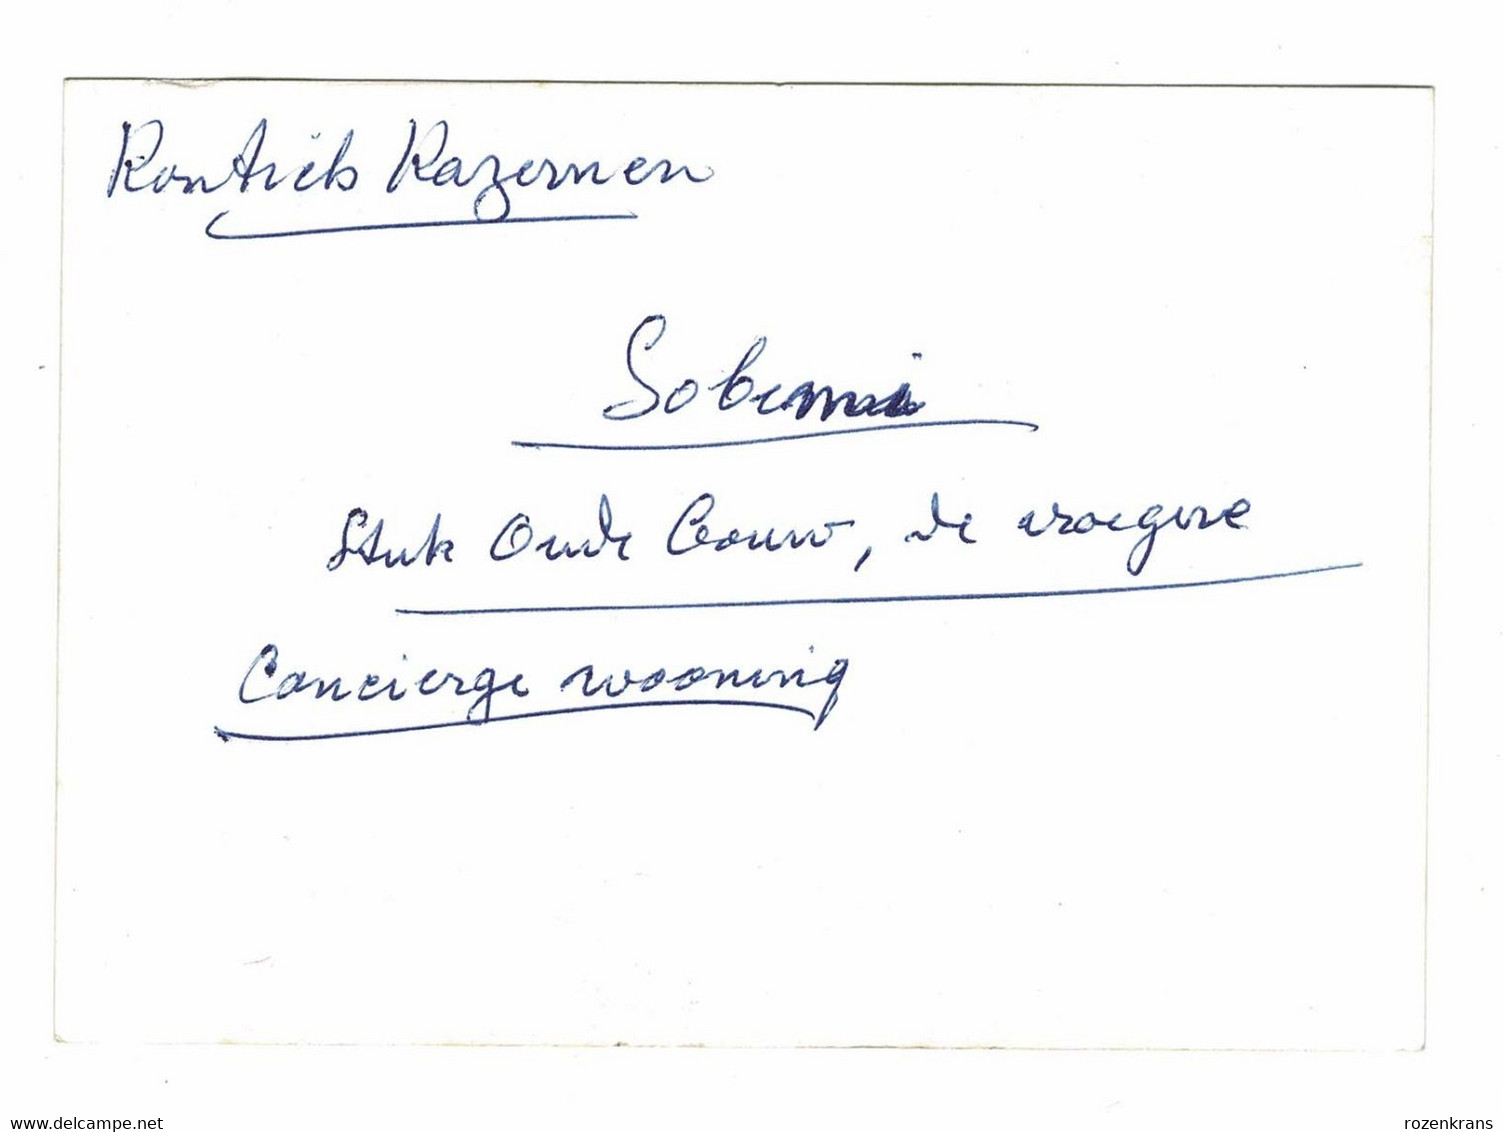 Kontich Kazernen
Sobemi
Stuk Oude Bouw, de vroegere
Concierge wooning
www.delcampe.net
rozenkrans